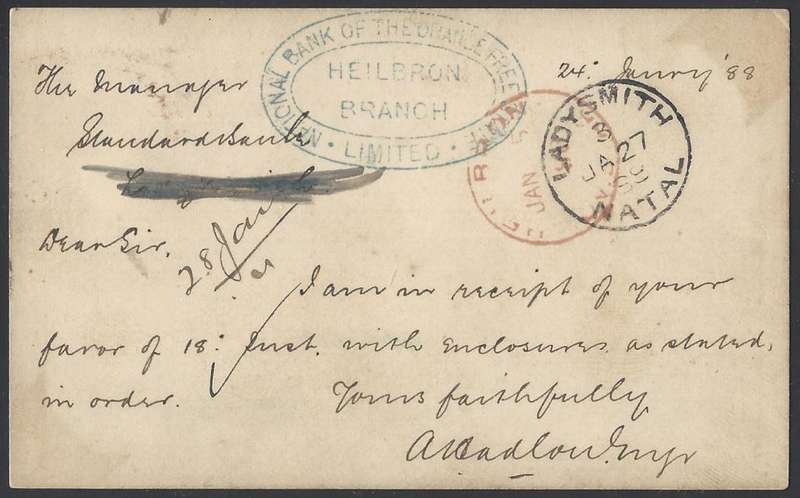 NATIONAL BANK OF THE ORANGE FREE STATE
HEILBRON
BRANCH
• LIMITED •
24: Janry '88
LADYSMITH
JA 27
88
NATAL
JAN
The Manager
Standard Bank
Dear Sir,
28 Jan
I am in receipt of your
favor of 18: Inst. with enclosures as stated,
in order.
Yours faithfully